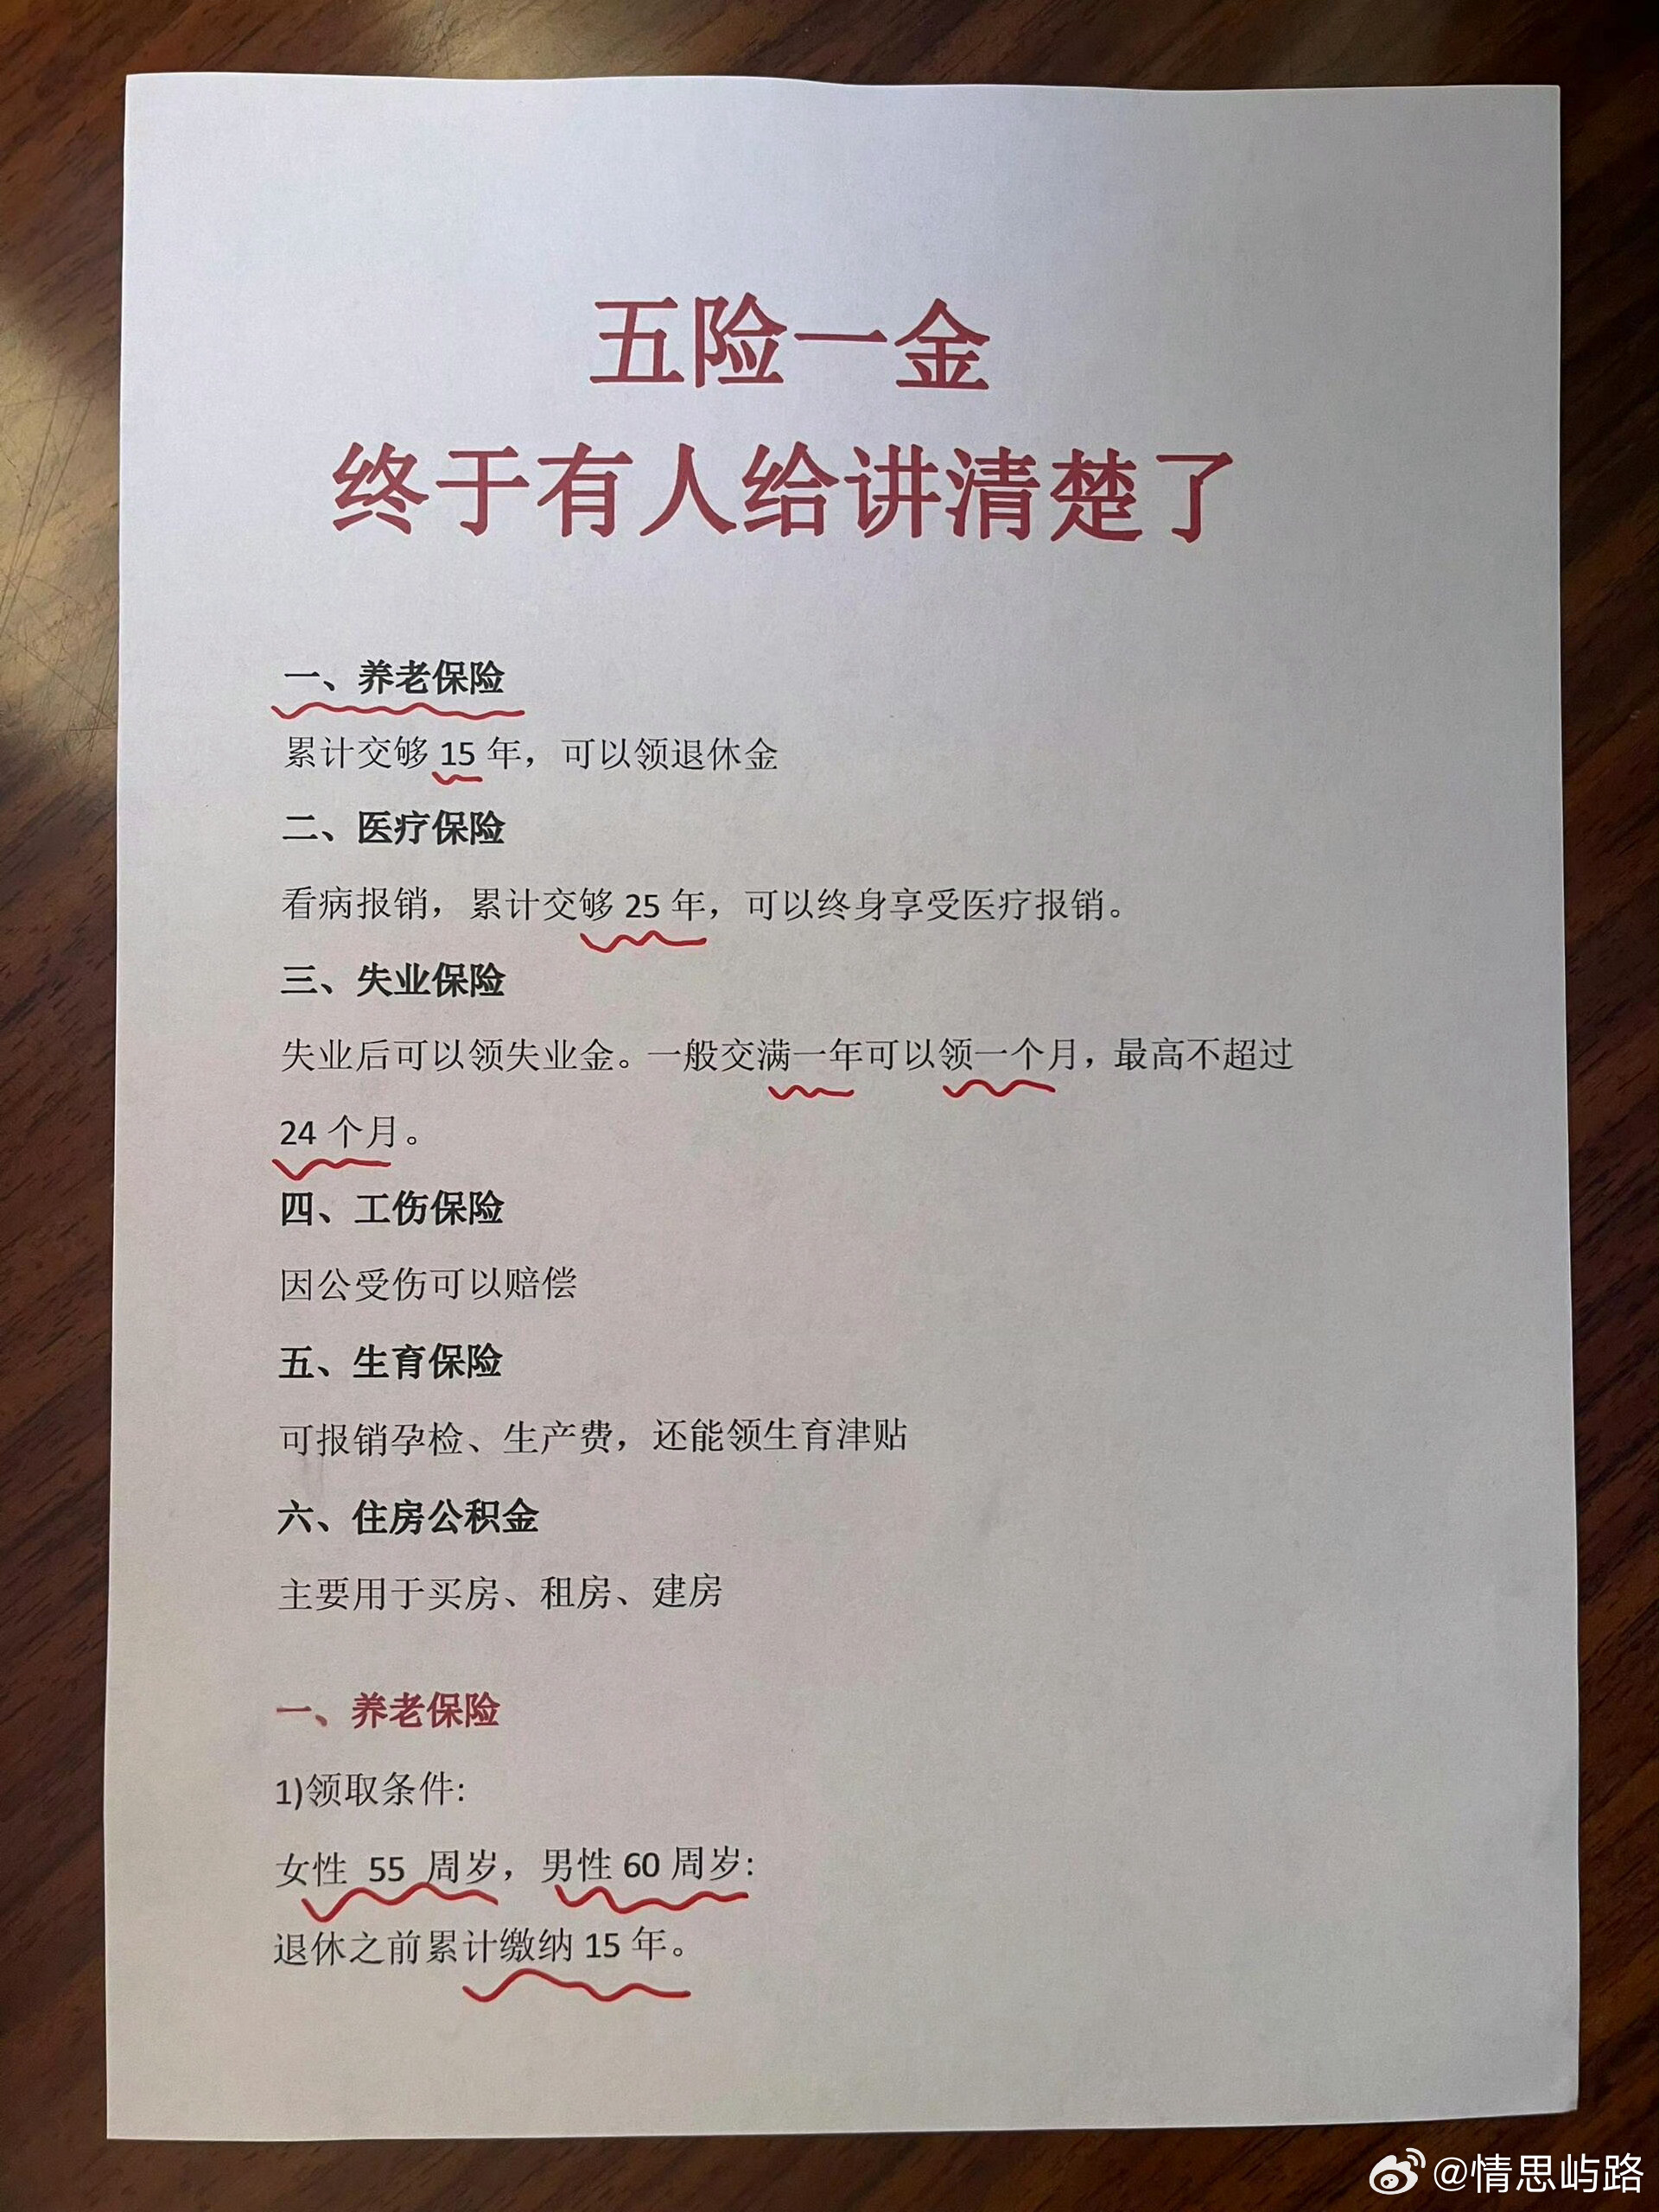 五险一金
终于有人给讲清楚了
一、养老保险
累计交够 15 年，可以领退休金
二、医疗保险
看病报销，累计交够 25 年，可以终身享受医疗报销。
三、失业保险
失业后可以领失业金。一般交满一年可以领一个月，最高不超过
24 个月。
四、工伤保险
因公受伤可以赔偿
五、生育保险
可报销孕检、生产费，还能领生育津贴
六、住房公积金
主要用于买房、租房、建房
一、养老保险
1)领取条件:
女性 55 周岁，男性 60 周岁:
退休之前累计缴纳 15 年。
@情思屿路